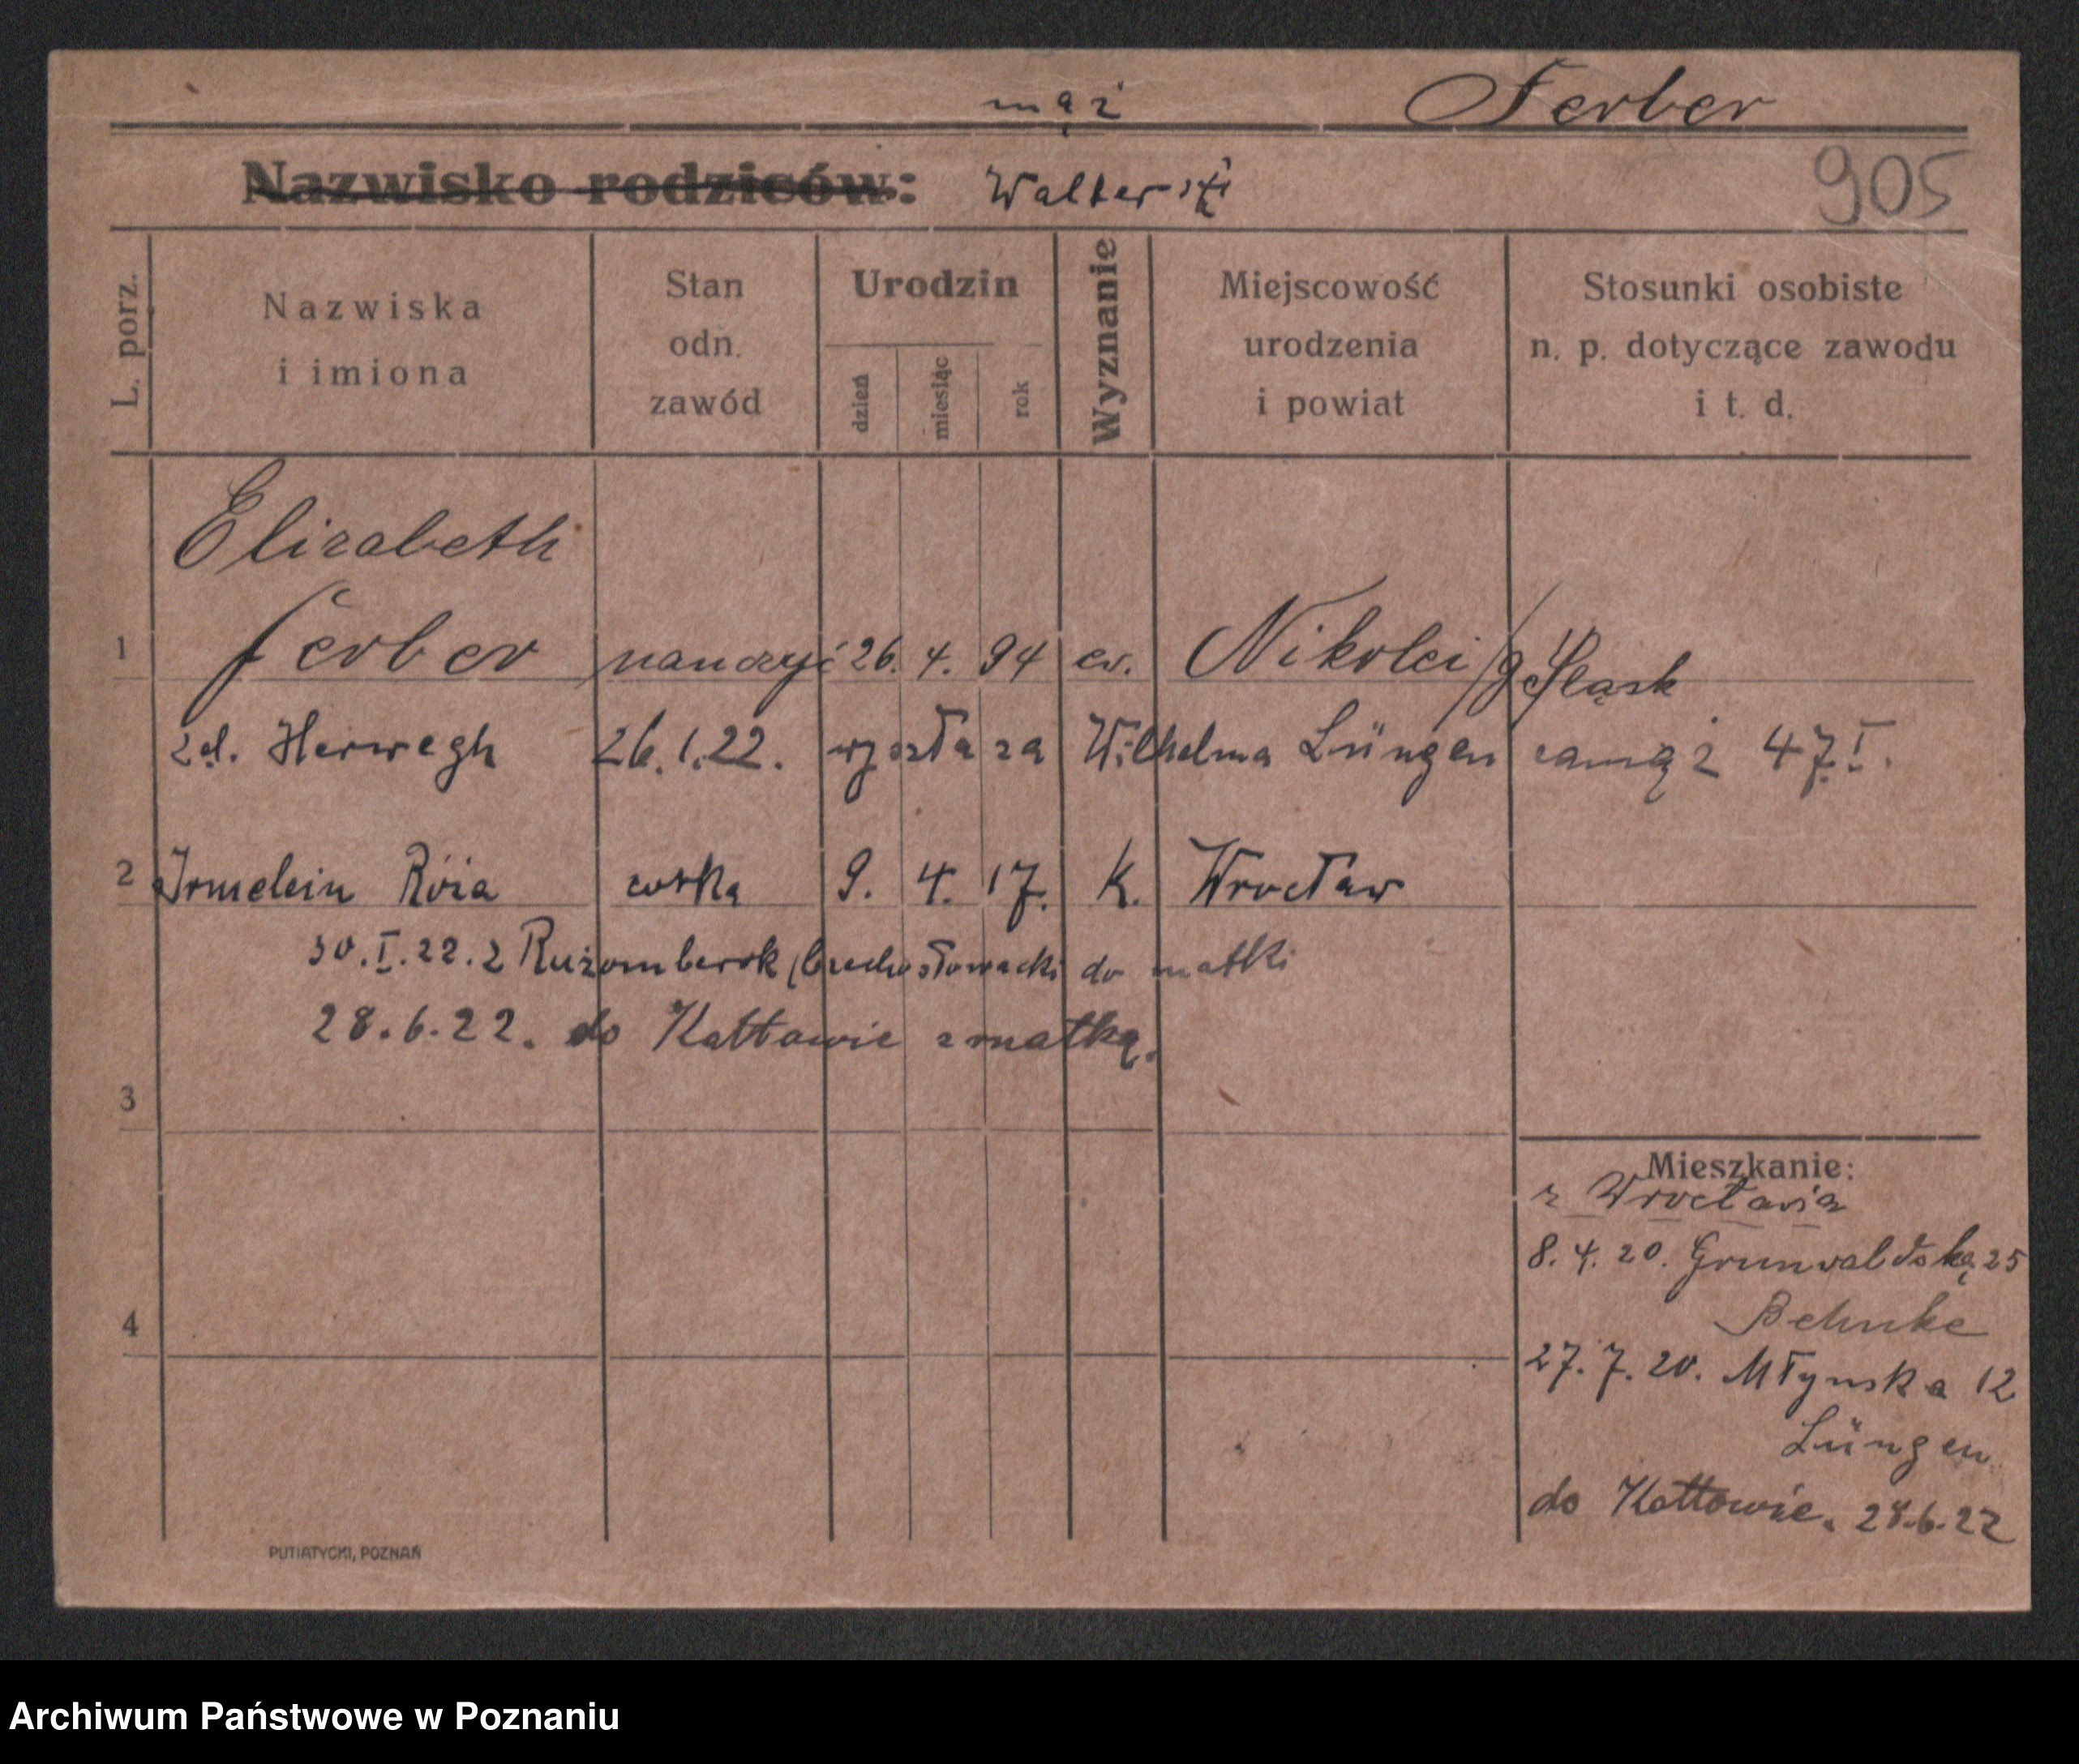 mąż Ferber
Nazwisko rodziców: Walter
905
L. porz.
Nazwiska
i imiona
Stan
odn.
zawód
Urodzin
dzień
miesiąc
rok
Wyznanie
Miejscowość
urodzenia
i powiat
Stosunki osobiste
n. p. dotyczące zawodu
i t. d.
Elisabeth
1 Ferber nauczyć 26. 4. 94 ew. Nikolei /g Śląsk
zd. Herwegh 26.1.22. wyszła za Wilhelma Lüngen zamąż 47.I.
2 Irmelein córka 9. 4. 17. K. Wrocław
30.I.22. z Rużomberok do matki
28.6.22. do Kattowic z matką.
3
Mieszkanie:
z Wrocławia
8. 4. 20. Grunwaldska 25
Behnke
4
27. 7. 20. Młynska 12
Lüngen
do Kattowic. 28.6.22
PUTIATYCKI, POZNAŃ
Archiwum Państwowe w Poznaniu